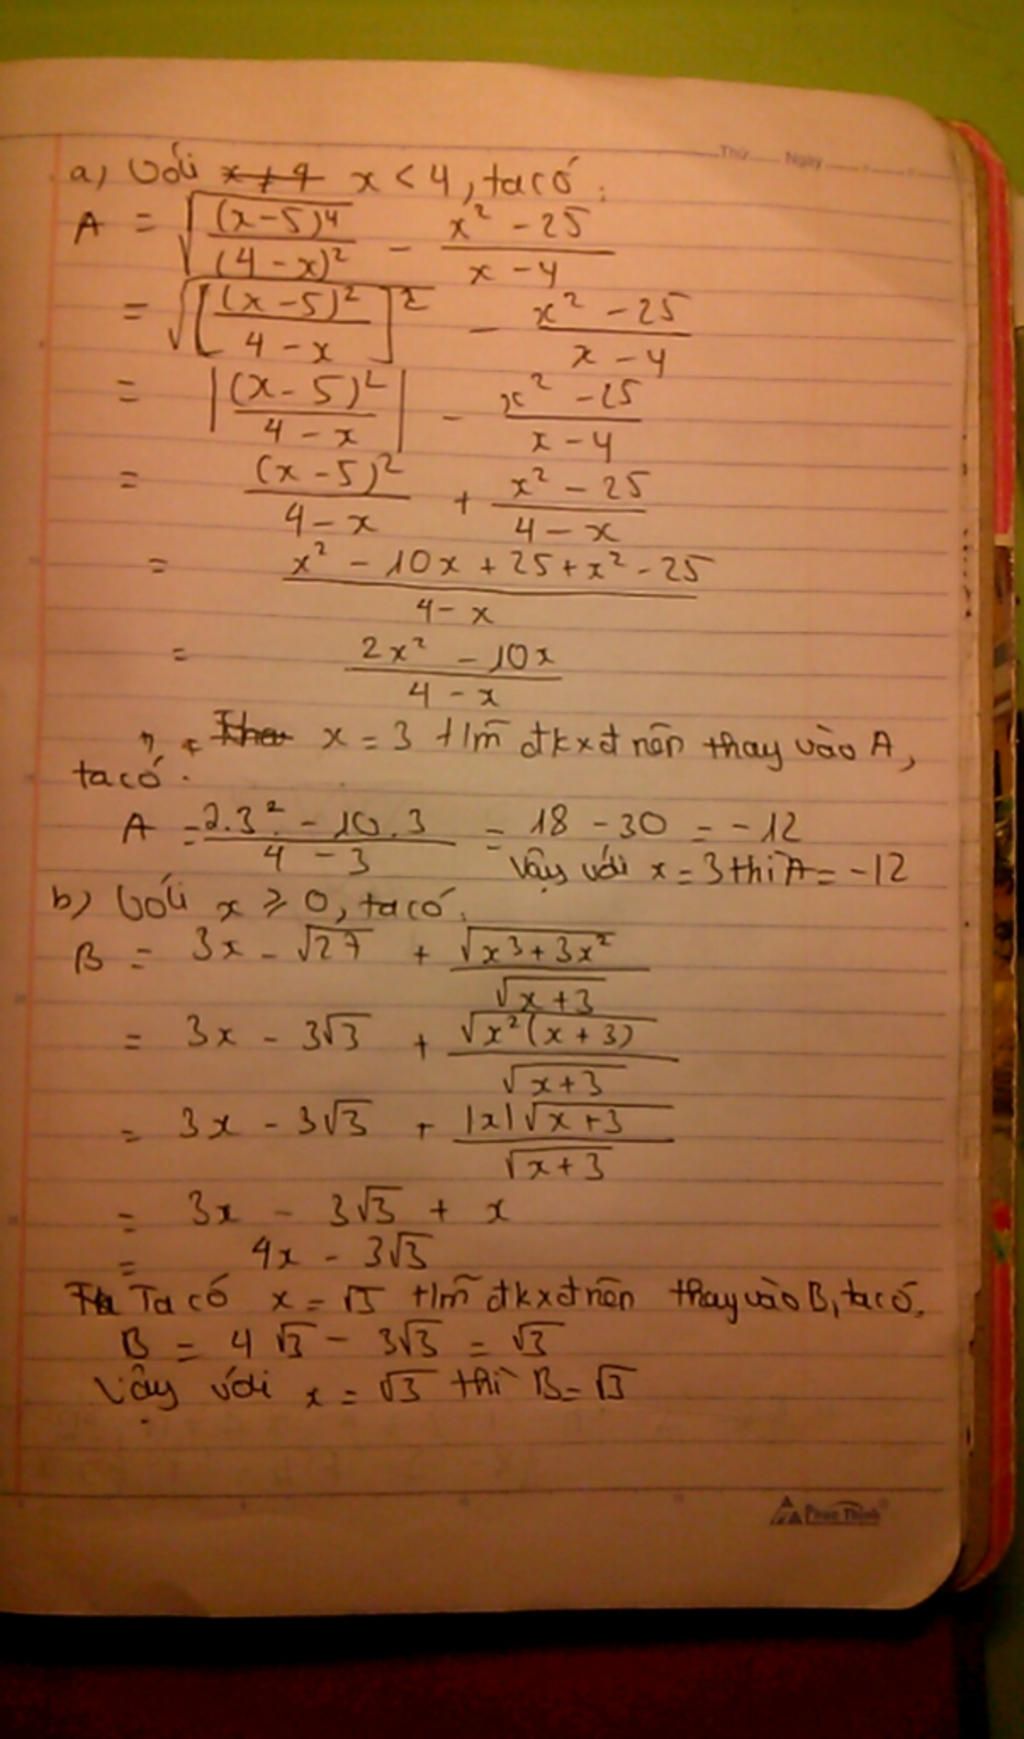 Thứ Ngày
a) Với x≠4 x < 4, ta có:
A = √((x-5)⁴/(4-x)²) - (x² - 25)/(x - 4)
= √[(x-5)²/(4-x)]² - (x² - 25)/(x - 4)
= |(x-5)²/(4-x)| - (x² - 25)/(x - 4)
= (x-5)²/(4-x) + (x² - 25)/(4 - x)
= (x² - 10x + 25 + x² - 25)/(4 - x)
= (2x² - 10x)/(4 - x)
x = 3 t/m đkxđ nên thay vào A,
ta có.
A = (2.3² - 10.3)/(4 - 3) = 18 - 30 = -12
Vậy với x = 3 thì A = -12
b) Với x ≥ 0, ta có.
B = 3x - √27 + √(x³+3x²)/√(x+3)
= 3x - 3√3 + √(x²(x+3))/√(x+3)
= 3x - 3√3 + |x|√(x+3)/√(x+3)
= 3x - 3√3 + x
= 4x - 3√3
Ta có x = √3 t/m đkxđ nên thay vào B, ta có.
B = 4√3 - 3√3 = √3
Vậy với x = √3 thì B = √3
Phúc Thịnh